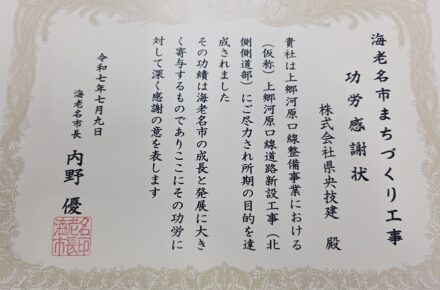 海老名市まちづくり工事
功労感謝状
株式会社県央技建　殿
貴社は上郷河原口線整備事業における
（仮称）上郷河原口線道路新設工事（北
側側道部）にご尽力され所期の目的を達
成されました
その功績は海老名市の成長と発展に大き
く寄与するものでありここにその功労に
対して深く感謝の意を表します
令和七年七月九日
海老名市長　内野　優
海老名市長印